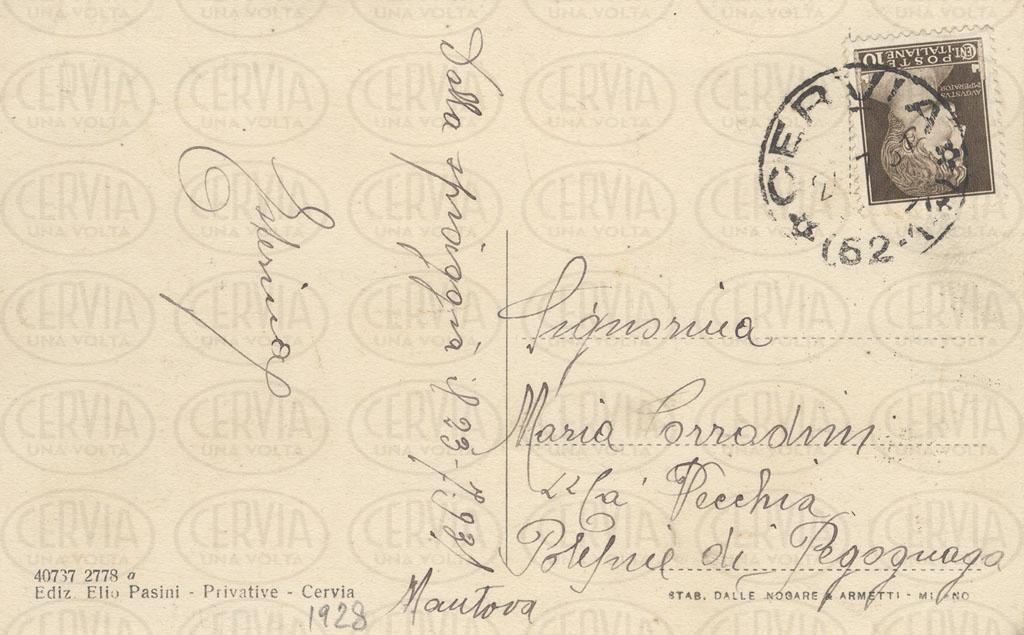 Dalla spiaggia il 23-7-931
Esterina
POSTE ITALIANE
CENT. 10
AVGVSTVS
IMPERATOR
CERVIA
(62-
Signorina
Maria Corradini
"Ca' Vecchia
di Pegognaga
Mantova
40737 2778 a
Ediz. Elio Pasini - Privative - Cervia
1928
STAB. DALLE NOGARE & ARMETTI - MILANO
CERVIA
UNA VOLTA